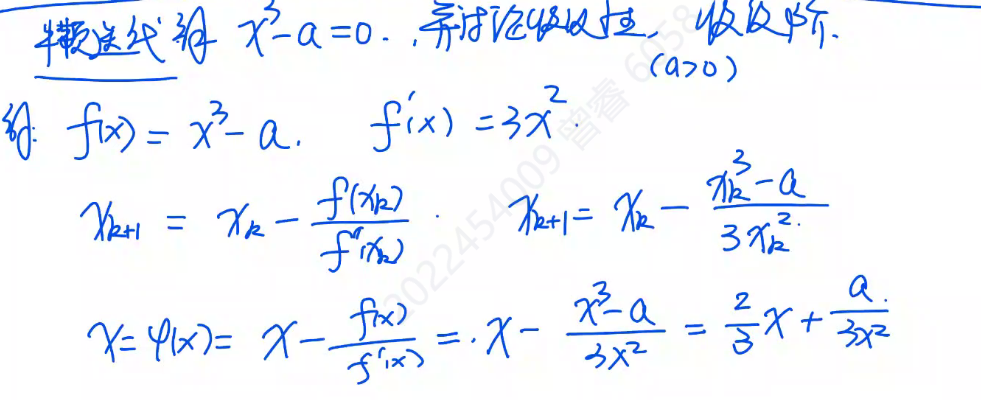 牛顿迭代解 x³-a=0. ,并讨论收敛性, 收敛阶.
(a>0)
解: f(x) = x³-a. f'(x) = 3x².
x_{k+1} = x_k - f(x_k)/f'(x_k) . x_{k+1} = x_k - (x_k³-a)/(3x_k².)
x = φ(x) = x - f(x)/f'(x) = . x - (x³-a)/(3x²) = 2/3 x + a./(3x²)